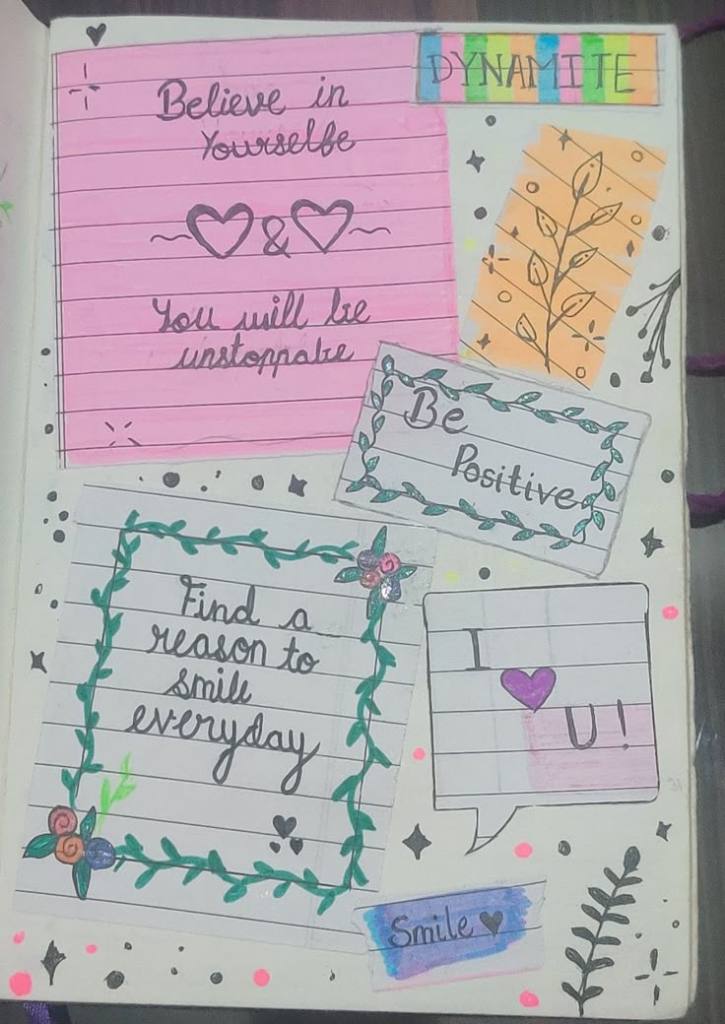 DYNAMITE
Believe in
Yourselfe
&
You will be
unstoppabe
Be
Positive
Find a
reason to
smile
everyday
I
U!
Smile